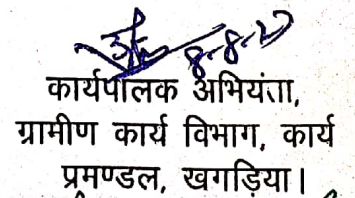 8-8-23
कार्यपालक अभियंता,
ग्रामीण कार्य विभाग, कार्य
प्रमण्डल, खगड़िया।